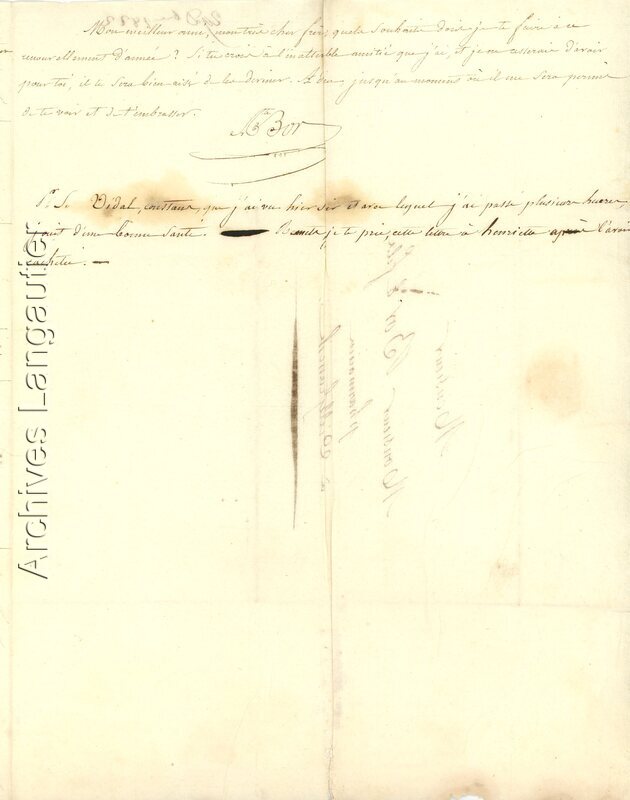 Mon meilleur ami, mon très cher frère, quels souhaits dois-je te faire à ce
renouvellement d'année ? Si tu crois à l'inaltérable amitié que j'ai, et je ne cesserai d'avoir
pour toi, il te sera bien aisé de les deviner. Adieu, jusqu'au moment où il me sera permis
de te voir et de t'embrasser.
Bor
P. S. Vidal, constans, que j'ai vu hier soir et avec lequel j'ai passé plusieurs heures,
jouit d'une bonne santé. Remets, je te prie, cette lettre à henriette après l'avoir
cachetée.
Monsieur
Monsieur Bor
pharmacien
Archives Langautier